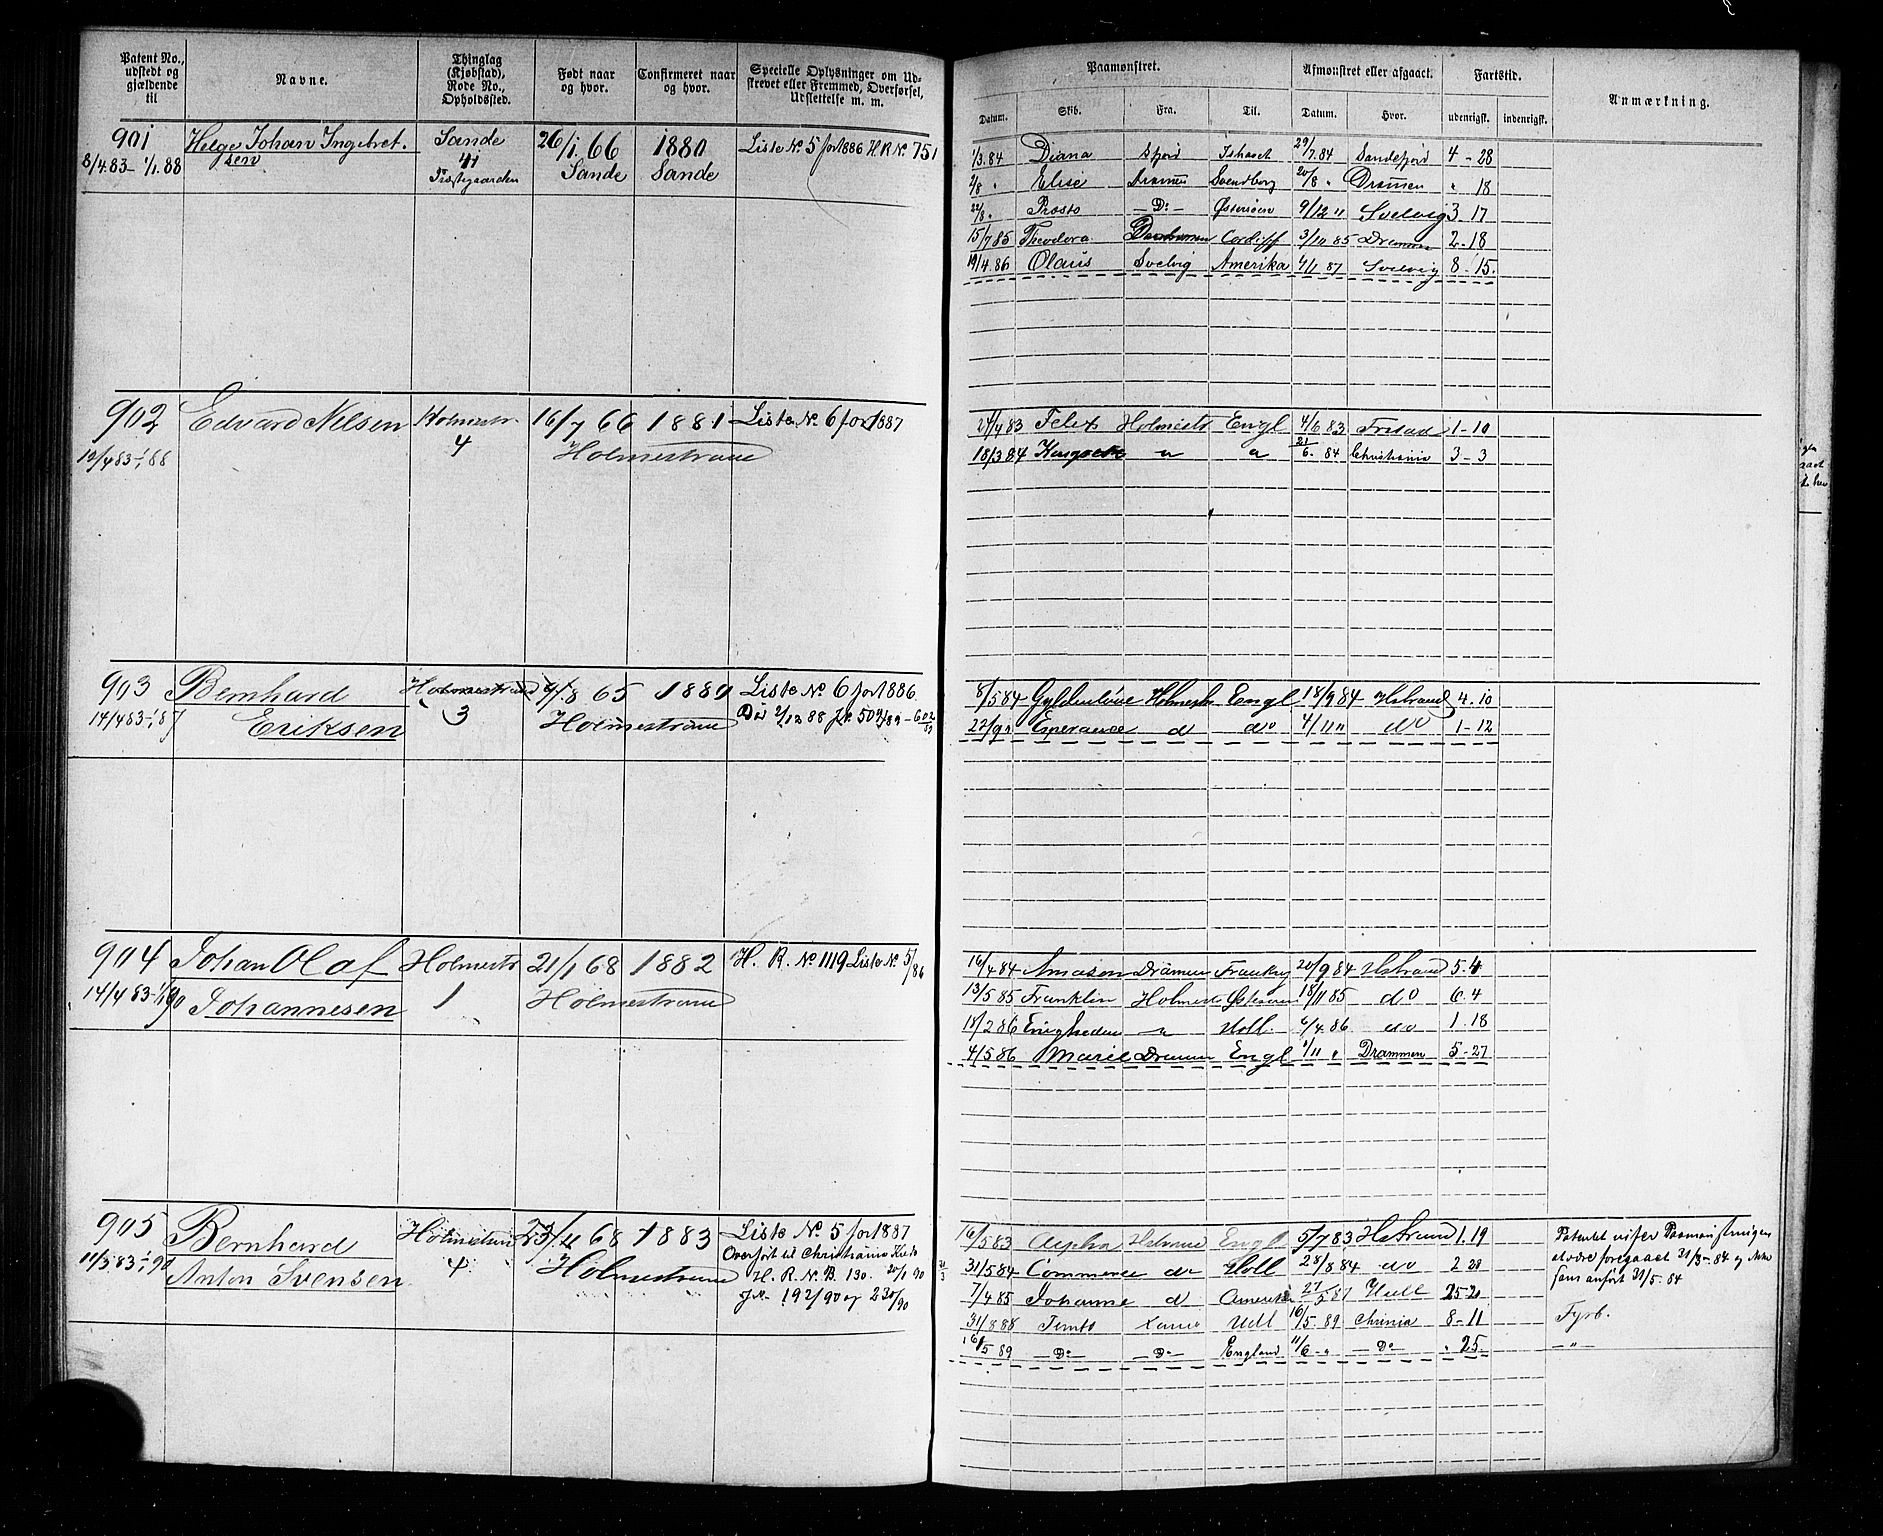 Patent No., udstedt og gjældende til
Navne.
Thinglag (Kjøbstad), Rode No., Opholdssted.
Født naar og hvor.
Confirmeret naar og hvor.
Specielle Oplysninger om Udskrevet eller Fremmed, Overførsel, Udslettelse m. m.
Paamønstret.
Afmønstret eller afgaaet.
Fartstid.
Anmærkning.
Datum. Skib. Fra. Til. Datum. Hvor. udenrigsk. indenrigsk.
901 Helge Johan Ingebret. Sande 26/1 66 1880 Liste No 5 for 1886 H R No 751
8/4 83 - 1/1 88 sen Sande Sande
1/3.84 Diana Sfjord Ishavet 29/7.84 Sandefjord 4 - 28
2/8 " Elise Drammen Svendborg 20/8 " Drammen " 18
22/8 " Præsto - Do - Østersøen 9/12 " Svelvig 3 - 17
15/7 85 Theodora Cardiff 3/10 85 Drammen 2 - 18
19/4.86 Olaus Svelvig Amerika 4/1 87 Svelvig 8 - 15.
902 Edvard Nilsen Holmestr. 16/7 66 1881 Liste No 6 for 1887
12/4 83 - 1/1 88 4 Holmestrand
27/4 83 Holmestr Engl 4/6 83 1 - 10
18/3 84 " " 21/6. 84 Christiania 3 - 3
903 Bernhard Holmestrand 9/8 65 1881 Liste No 6 for 1886
14/4 83 - 1/1 87 Eriksen 3 Holmestrand Død 2/12 88
8/5 84 Gyldenløve Holmestr Engl 18/9 84 Hstrand 4. 10
22/9 " Esperance do do 4/11 " do 1 - 12
904 Johan Olaf Holmestr 21/1 68 1882 H. R. No 1119 Liste No 5/86
14/4 83 - 1/1 90 Johannesen 1 Holmestrand
16/4 84 Amason Drammen 20/9 84 Hstrand 5. 4
13/5 85 Franklin Holmest Østersøen 18/11 85 do 6. 4
18/2 86 Enigheden " Holl. 6/4. 86 do 1. 18
4/5 86 Marie Drammen Engl 1/11 " Drammen 5 - 27
905 Bernhard Holmestrand 23/4 68 1883 Liste No 5 for 1887
11/5 83 - 1/1 90 Anton Svensen 4 Holmestrand Overført til Christiania Kreds
H. R. No B. 130. 20/1 90
Jr. 192/90 og 230/90
16/5 83 Alpha Hstrand Engl 5/7 83 Hstrand 1. 19
31/5 84 Commerce do Holl 28/8 84 do 2 28
7/4 85 Johanne do Amerika 27/5 87 Hull 25 - 20
31/8 88 Udl 16/5. 89 Chrania 8 - 11 Fyrb.
16/5 89 - Do - - Do - England 11/6 - " - Do - " 25. - " -
Patentet viser Paamønstringen
at være foregaaet 31/3 - 84 og ikke
som anført 31/5 - 84